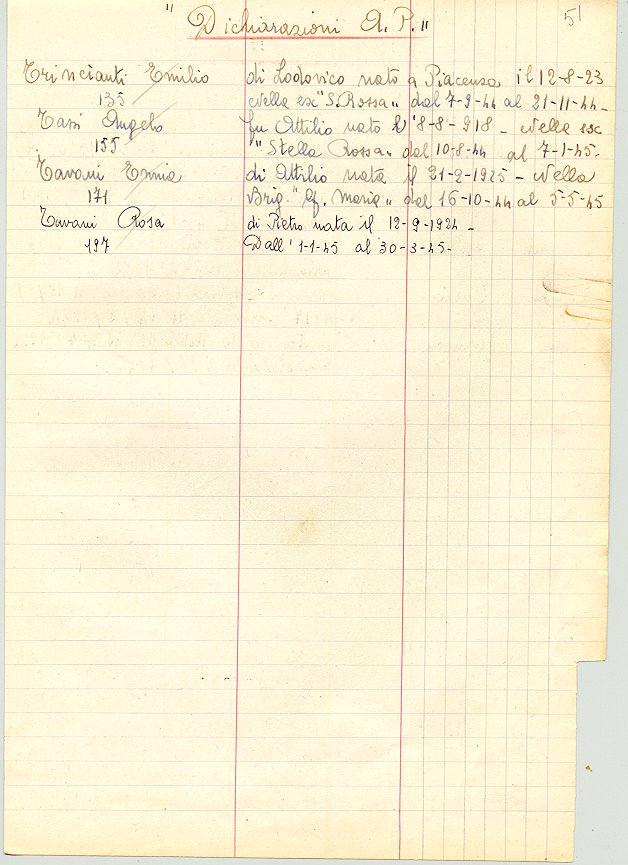 51
"Dichiarazioni A. P."
Trincianti Emilio di Lodovico nato a Piacenza il 12-8-23
135 Nella ex "S. Rossa" dal 7-9-44 al 21-11-44-
Tassi Angelo fu Attilio nato l' 8-8-918 - Nella ex
155 "Stella Rossa" dal 10-8-44 al 7-1-45-
Tavani Ennia di Attilio nata il 21-2-1925 - Nella
171 Brig. "Gf. Maria" dal 16-10-44 al 5-5-45
Tavani Rosa di Pietro nata il 12-9-1924 -
197 Dall' 1-1-45 al 30-3-45-